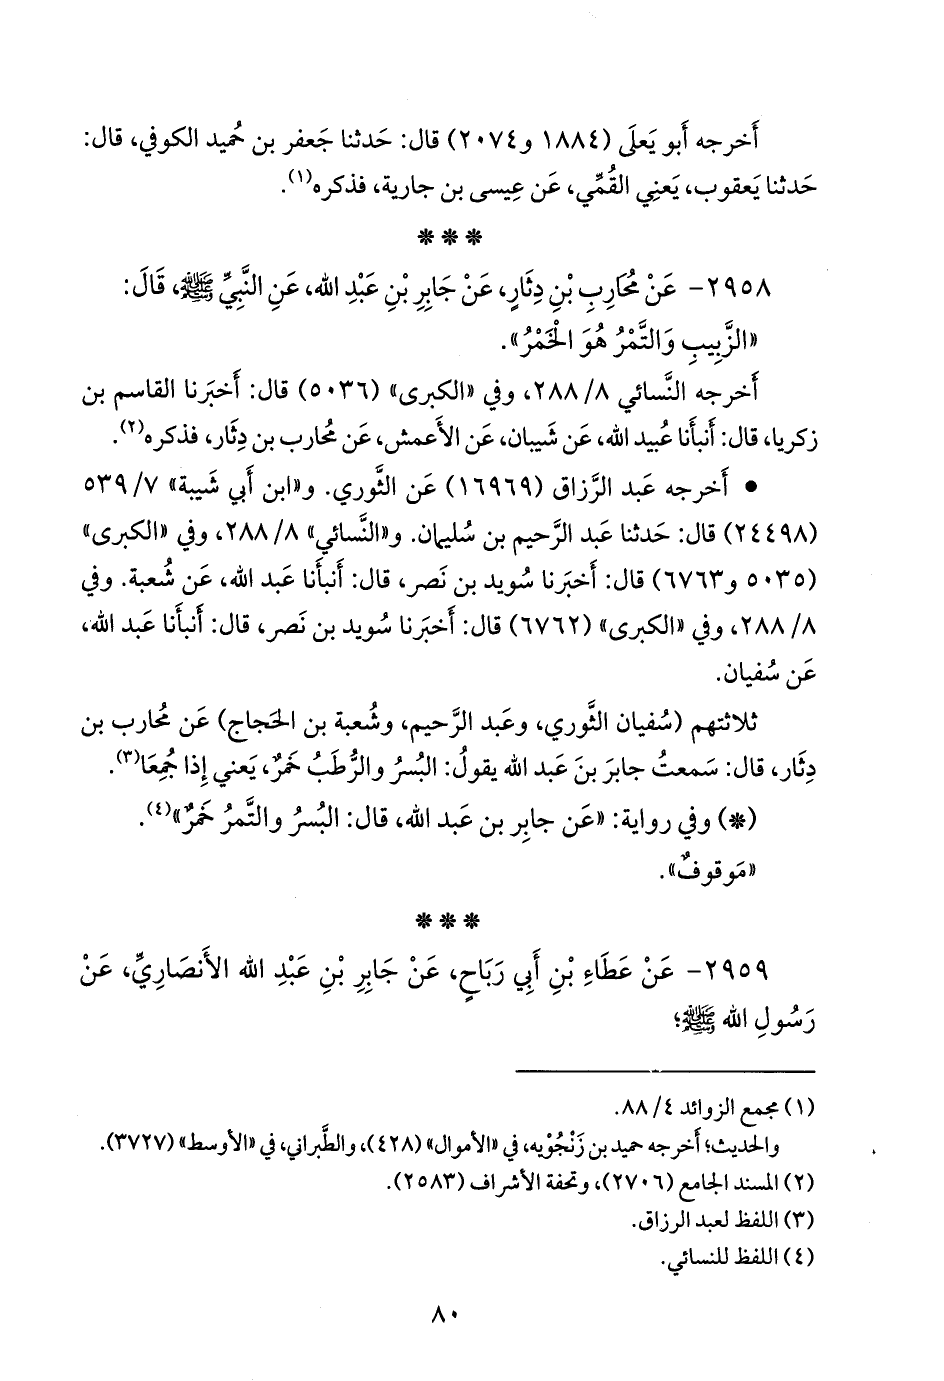 أَخرجه أَبو يَعلَى (١٨٨٤ و٢٠٧٤) قال: حَدثنا جَعفر بن حُميد الكوفي، قال:
حَدثنا يَعقوب، يَعنِي القُمِّي، عَن عِيسى بن جارية، فذكره(١).
* * *
٢٩٥٨- عَنْ مُحَارِبِ بْنِ دِثَارٍ، عَنْ جَابِرِ بْنِ عَبْدِ الله، عَنِ النَّبِيِّ ﷺ، قَالَ:
«الزَّبِيبِ وَالتَّمْرُ هُوَ الْخَمْرُ».
أَخرجه النَّسائي ٨/ ٢٨٨، وفي «الكبرى» (٥٠٣٦) قال: أَخبَرنا القاسم بن
زكريا، قال: أَنبأَنا عُبيد الله، عَن شَيبان، عَن الأَعمش، عَن مُحارب بن دِثَار، فذكره(٢).
• أَخرجه عَبد الرَّزاق (١٦٩٦٩) عَن الثَّوري. و«ابن أَبي شَيبة» ٧/ ٥٣٩
(٢٤٤٩٨) قال: حَدثنا عَبد الرَّحيم بن سُليمان. و«النَّسائي» ٨/ ٢٨٨، وفي «الكبرى»
(٥٠٣٥ و٦٧٦٣) قال: أَخبَرنا سُويد بن نَصر، قال: أَنبأَنا عَبد الله، عَن شُعبة. وفي
٨/ ٢٨٨، وفي «الكبرى» (٦٧٦٢) قال: أَخبَرنا سُويد بن نَصر، قال: أَنبأَنا عَبد الله،
عَن سُفيان.
ثلاثتهم (سُفيان الثَّوري، وعَبد الرَّحيم، وشُعبة بن الحَجاج) عَن مُحارب بن
دِثَار، قال: سَمعتُ جابرَ بنَ عَبد الله يقولُ: البُسرُ والرُّطَبُ خَمرٌ، يَعني إِذا جُمِعَا(٣).
(*) وفي رواية: «عَن جابِر بن عَبد الله، قال: البُسرُ والتَّمرُ خَمرٌ»(٤).
«مَوقوفٌ».
* * *
٢٩٥٩- عَنْ عَطَاءِ بْنِ أَبِي رَبَاحٍ، عَنْ جَابِرِ بْنِ عَبْدِ الله الأَنصَارِيِّ، عَنْ
رَسُولِ الله ﷺ؛
(١) مجمع الزوائد ٤/ ٨٨.
والحديث؛ أَخرجه حميد بن زَنْجُوْيه، في «الأموال» (٤٢٨)، والطَّبراني، في «الأوسط» (٣٧٢٧).
(٢) المسند الجامع (٢٧٠٦)، وتحفة الأشراف (٢٥٨٣).
(٣) اللفظ لعبد الرزاق.
(٤) اللفظ للنسائي.
٨٠